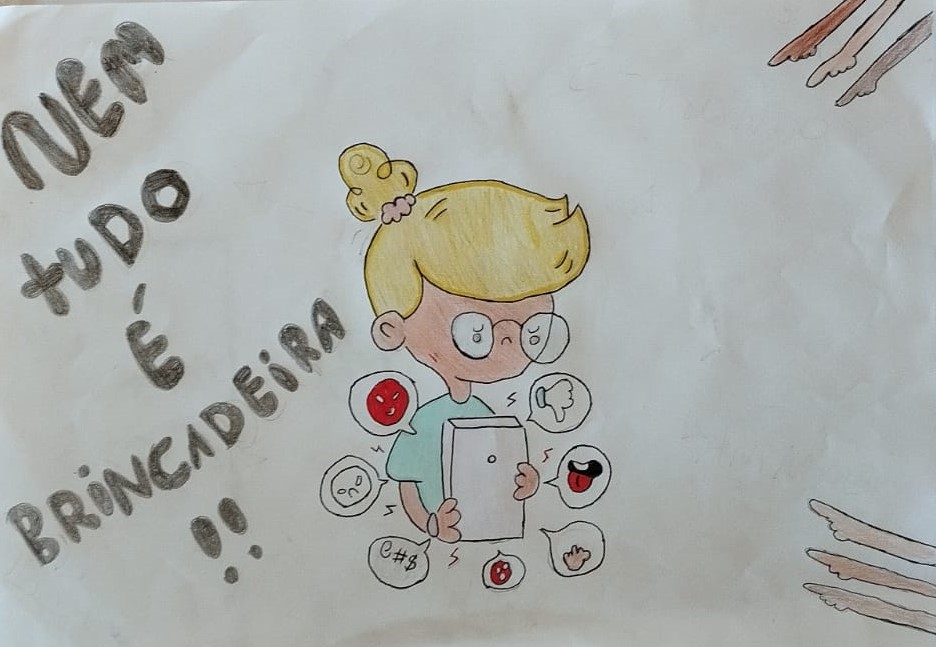 NEM
tUDO
É
BRiNCADEiRA
!!
@#$